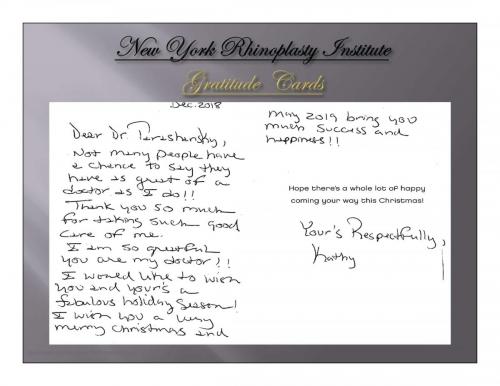 New York Rhinoplasty Institute
Gratitude Cards
Dec. 2018
Dear Dr. Pereshensky,
Not many people have
a chance to say they
have as great of a
doctor as I do!!
Thank you so much
for taking such good
care of me.
I am so grateful
you are my doctor!!
I would like to wish
you and your's a
fabulous holiday season!
I wish you a very
merry christmas and
may 2019 bring you
much success and
happiness!!
Hope there's a whole lot of happy
coming your way this Christmas!
Your's Respectfully,
Kathy